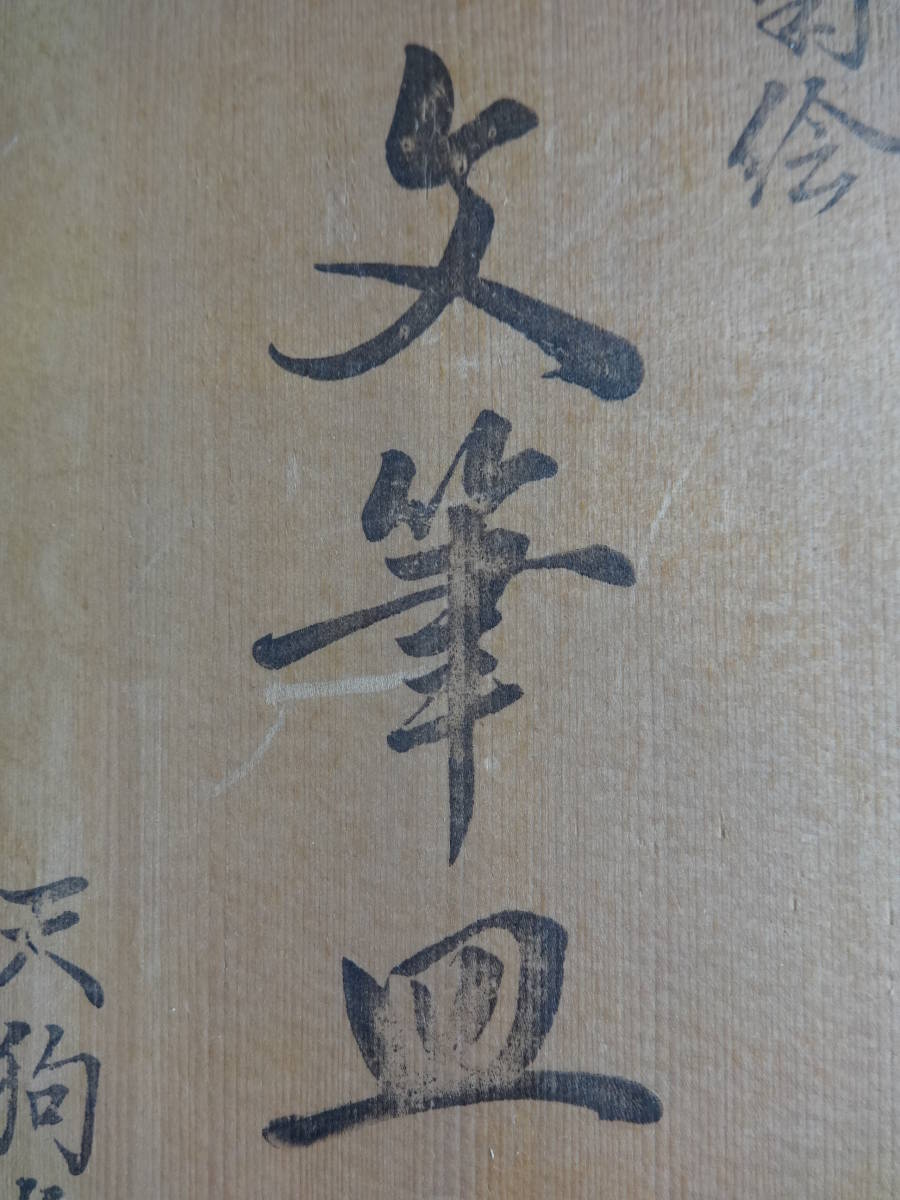 絵
文筆皿
天狗